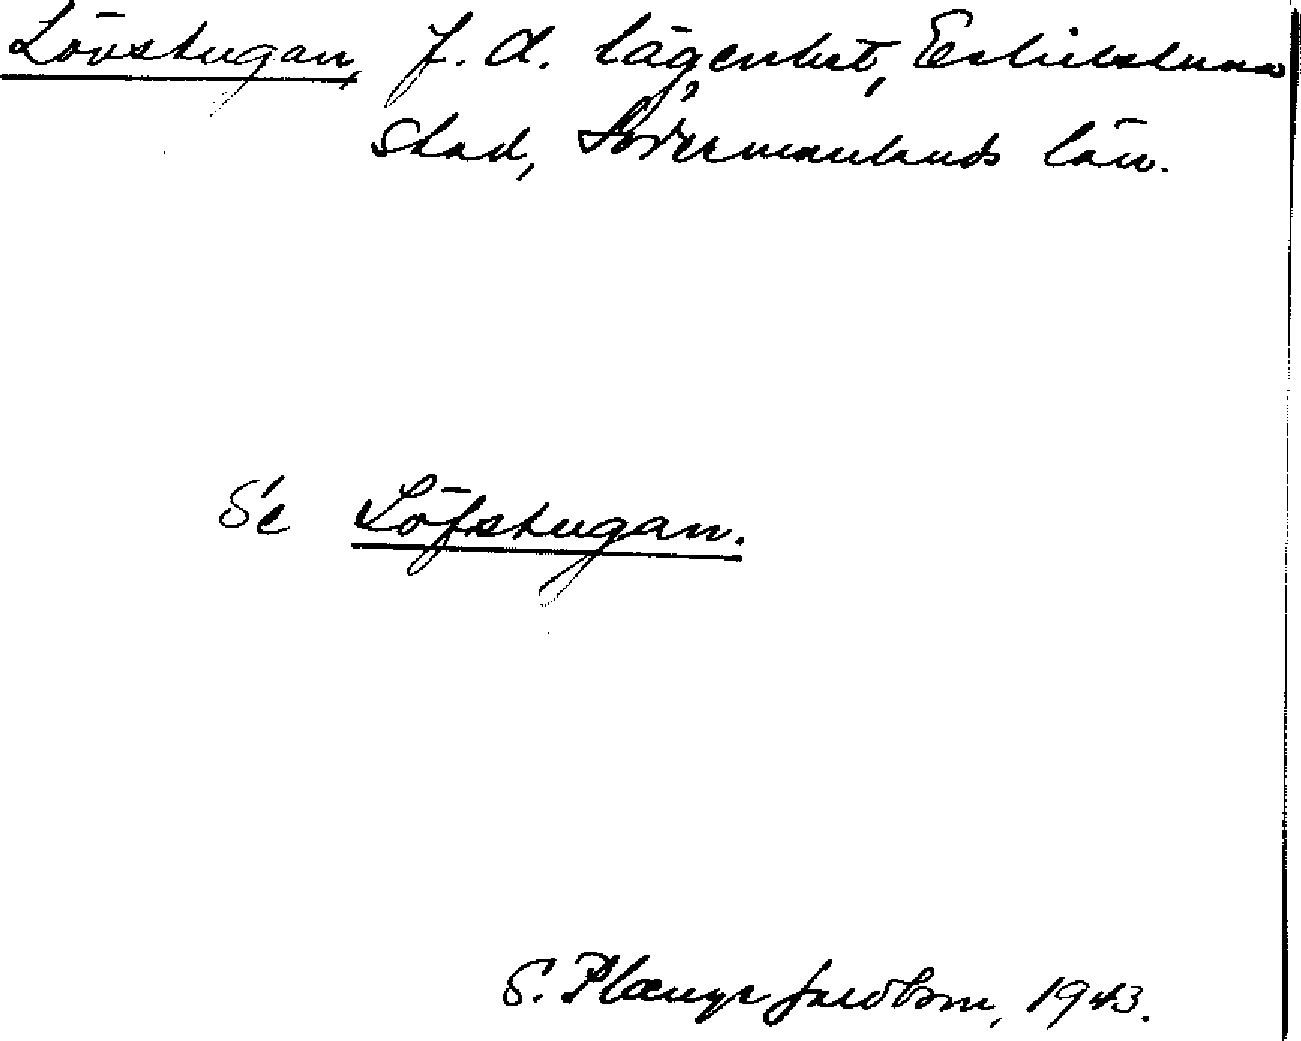 Lövstugan, f. d. lägenhet, Eskilstuna
stad, Södermanlands län.
Se Löfstugan.
S. Plænge Jacobson, 1943.